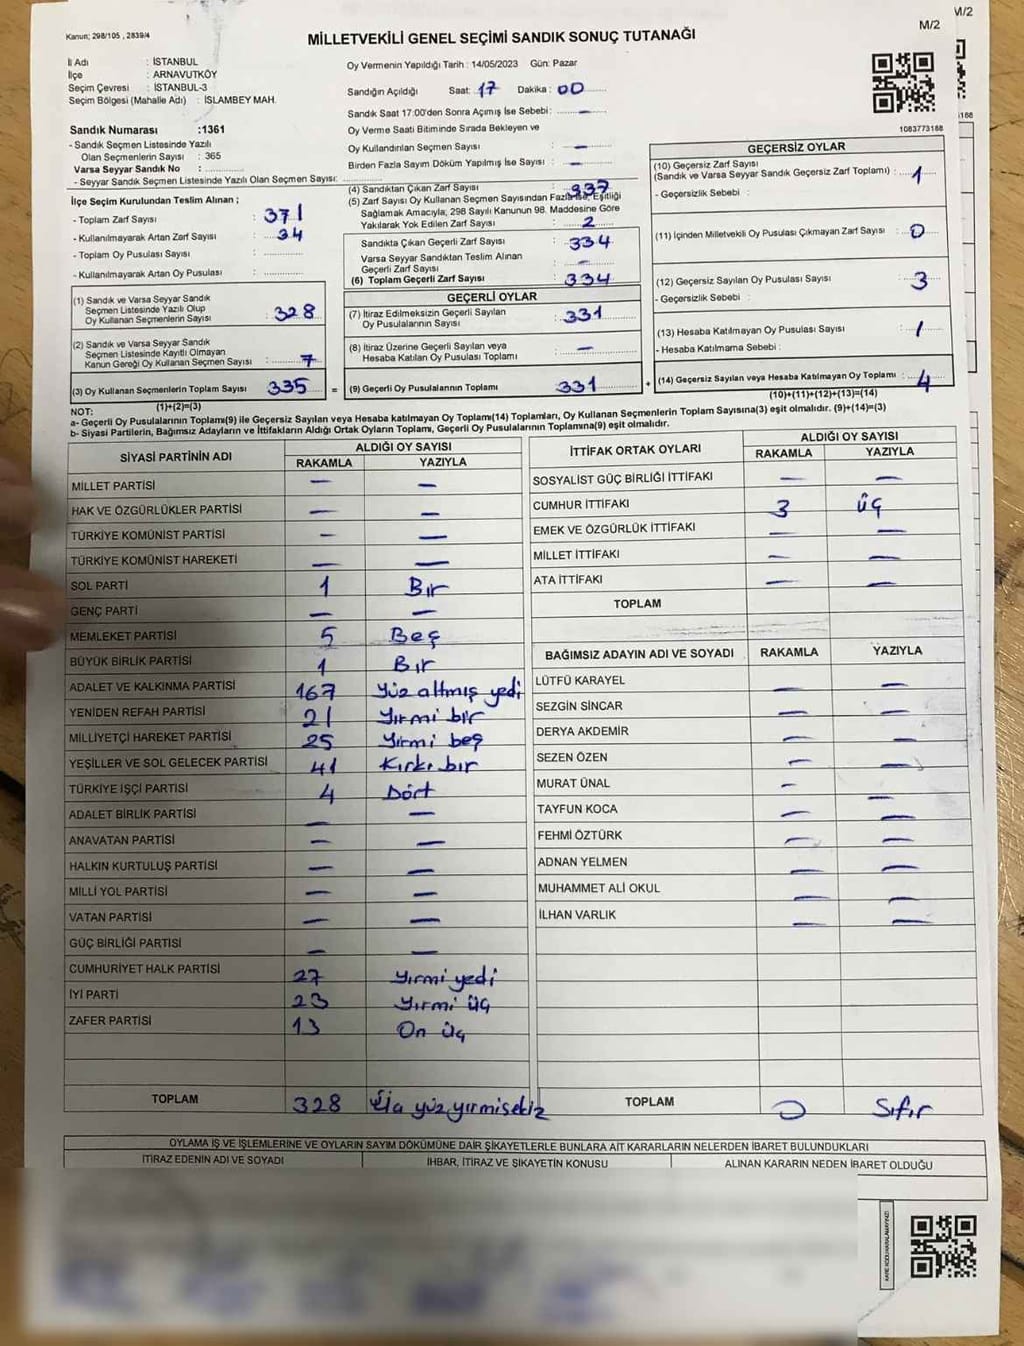 M/2
M/2
Kanun; 298/105 , 2839/4
MİLLETVEKİLİ GENEL SEÇİMİ SANDIK SONUÇ TUTANAĞI
İl Adı : İSTANBUL
İlçe : ARNAVUTKÖY
Seçim Çevresi : İSTANBUL-3
Seçim Bölgesi (Mahalle Adı) : İSLAMBEY MAH.
Sandık Numarası :1361
- Sandık Seçmen Listesinde Yazılı
Olan Seçmenlerin Sayısı : 365
Varsa Seyyar Sandık No :
- Seyyar Sandık Seçmen Listesinde Yazılı Olan Seçmen Sayısı:
Oy Vermenin Yapıldığı Tarih : 14/05/2023 Gün: Pazar
Sandığın Açıldığı Saat: 17 Dakika : 00
Sandık Saat 17:00'den Sonra Açımış İse Sebebi : —
Oy Verme Saati Bitiminde Sırada Bekleyen ve
Oy Kullandırılan Seçmen Sayısı : —
Birden Fazla Sayım Döküm Yapılmış İse Sayısı : —
1083773188
İlçe Seçim Kurulundan Teslim Alınan ;
- Toplam Zarf Sayısı : 371
- Kullanılmayarak Artan Zarf Sayısı : 34
- Toplam Oy Pusulası Sayısı :
- Kullanılmayarak Artan Oy Pusulası :
(1) Sandık ve Varsa Seyyar Sandık
Seçmen Listesinde Yazılı Olup
Oy Kullanan Seçmenlerin Sayısı : 328
(2) Sandık ve Varsa Seyyar Sandık
Seçmen Listesinde Kayıtlı Olmayan
Kanun Gereği Oy Kullanan Seçmen Sayısı : 7
(3) Oy Kullanan Seçmenlerin Toplam Sayısı 335
(1)+(2)=(3)
(4) Sandıktan Çıkan Zarf Sayısı : 337
(5) Zarf Sayısı Oy Kullanan Seçmen Sayısından Fazla İse, Eşitliği
Sağlamak Amacıyla, 298 Sayılı Kanunun 98. Maddesine Göre
Yakılarak Yok Edilen Zarf Sayısı : 2
Sandıkta Çıkan Geçerli Zarf Sayısı : 334
Varsa Seyyar Sandıktan Teslim Alınan
Geçerli Zarf Sayısı : —
(6) Toplam Geçerli Zarf Sayısı : 334
GEÇERLİ OYLAR
(7) İtiraz Edilmeksizin Geçerli Sayılan
Oy Pusulalarının Sayısı : 331
(8) İtiraz Üzerine Geçerli Sayılan veya
Hesaba Katılan Oy Pusulası Toplamı : —
= (9) Geçerli Oy Pusulalarının Toplamı 331 +
GEÇERSİZ OYLAR
(10) Geçersiz Zarf Sayısı
(Sandık ve Varsa Seyyar Sandık Geçersiz Zarf Toplamı) : 1
- Geçersizlik Sebebi :
(11) İçinden Milletvekili Oy Pusulası Çıkmayan Zarf Sayısı : 0
(12) Geçersiz Sayılan Oy Pusulası Sayısı : 3
- Geçersizlik Sebebi :
(13) Hesaba Katılmayan Oy Pusulası Sayısı : 1
- Hesaba Katılmama Sebebi :
(14) Geçersiz Sayılan veya Hesaba Katılmayan Oy Toplamı : 4
(10)+(11)+(12)+(13)=(14)
NOT:
a- Geçerli Oy Pusulalarının Toplamı(9) ile Geçersiz Sayılan veya Hesaba katılmayan Oy Toplamı(14) Toplamları, Oy Kullanan Seçmenlerin Toplam Sayısına(3) eşit olmalıdır. (9)+(14)=(3)
b- Siyasi Partilerin, Bağımsız Adayların ve İttifakların Aldığı Ortak Oyların Toplamı, Geçerli Oy Pusulalarının Toplamına(9) eşit olmalıdır.
SİYASİ PARTİNİN ADI ALDIĞI OY SAYISI
RAKAMLA YAZIYLA
MİLLET PARTİSİ — —
HAK VE ÖZGÜRLÜKLER PARTİSİ — —
TÜRKİYE KOMÜNİST PARTİSİ — —
TÜRKİYE KOMÜNİST HAREKETİ — —
SOL PARTİ 1 Bir
GENÇ PARTİ — —
MEMLEKET PARTİSİ 5 Beş
BÜYÜK BİRLİK PARTİSİ 1 Bir
ADALET VE KALKINMA PARTİSİ 167 Yüz altmış yedi
YENİDEN REFAH PARTİSİ 21 Yirmi bir
MİLLİYETÇİ HAREKET PARTİSİ 25 Yirmi beş
YEŞİLLER VE SOL GELECEK PARTİSİ 41 Kırk bir
TÜRKİYE İŞÇİ PARTİSİ 4 Dört
ADALET BİRLİK PARTİSİ — —
ANAVATAN PARTİSİ — —
HALKIN KURTULUŞ PARTİSİ — —
MİLLİ YOL PARTİSİ — —
VATAN PARTİSİ — —
GÜÇ BİRLİĞİ PARTİSİ — —
CUMHURİYET HALK PARTİSİ 27 Yirmi yedi
İYİ PARTİ 23 Yirmi üç
ZAFER PARTİSİ 13 On üç
TOPLAM 328 yüz yirmi sekiz
İTTİFAK ORTAK OYLARI ALDIĞI OY SAYISI
RAKAMLA YAZIYLA
SOSYALİST GÜÇ BİRLİĞİ İTTİFAKI — —
CUMHUR İTTİFAKI 3 üç
EMEK VE ÖZGÜRLÜK İTTİFAKI — —
MİLLET İTTİFAKI — —
ATA İTTİFAKI — —
TOPLAM
BAĞIMSIZ ADAYIN ADI VE SOYADI RAKAMLA YAZIYLA
LÜTFÜ KARAYEL — —
SEZGİN SİNCAR — —
DERYA AKDEMİR — —
SEZEN ÖZEN — —
MURAT ÜNAL — —
TAYFUN KOCA — —
FEHMİ ÖZTÜRK — —
ADNAN YELMEN — —
MUHAMMET ALİ OKUL — —
İLHAN VARLIK — —
TOPLAM 0 Sıfır
OYLAMA İŞ VE İŞLEMLERİNE VE OYLARIN SAYIM DÖKÜMÜNE DAİR ŞİKAYETLERLE BUNLARA AİT KARARLARIN NELERDEN İBARET BULUNDUKLARI
İTİRAZ EDENİN ADI VE SOYADI İHBAR, İTİRAZ VE ŞİKAYETİN KONUSU ALINAN KARARIN NEDEN İBARET OLDUĞU
KARE KODU KARALAMAYINIZ!